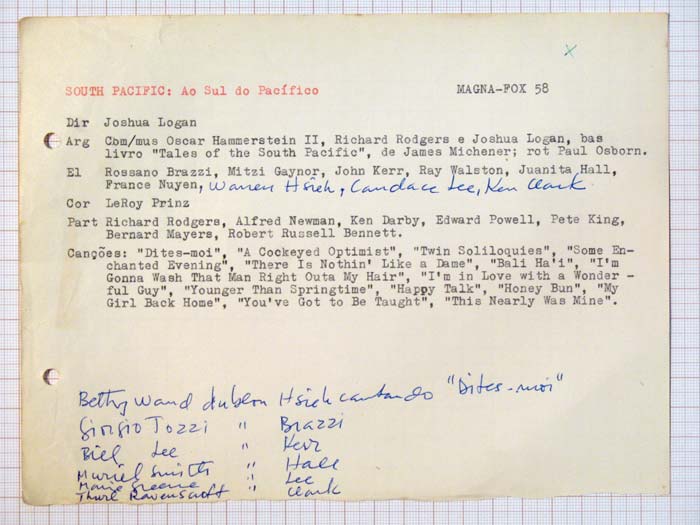 x
SOUTH PACIFIC: Ao Sul do Pacífico MAGNA-FOX 58
Dir Joshua Logan
Arg Cbm/mus Oscar Hammerstein II, Richard Rodgers e Joshua Logan, bas
livro "Tales of the South Pacific", de James Michener; rot Paul Osborn.
El Rossano Brazzi, Mitzi Gaynor, John Kerr, Ray Walston, Juanita Hall,
France Nuyen, Warren Hsieh, Candace Lee, Ken Clark
Cor LeRoy Prinz
Part Richard Rodgers, Alfred Newman, Ken Darby, Edward Powell, Pete King,
Bernard Mayers, Robert Russell Bennett.
Canções: "Dites-moi", "A Cockeyed Optimist", "Twin Soliloquies", "Some En-
chanted Evening", "There Is Nothin' Like a Dame", "Bali Ha'i", "I'm
Gonna Wash That Man Right Outa My Hair", "I'm in Love with a Wonder -
ful Guy", "Younger Than Springtime", "Happy Talk", "Honey Bun", "My
Girl Back Home", "You've Got to Be Taught", "This Nearly Was Mine".
Betty Wand dublou Hsieh cantando "Dites-moi"
Giorgio Tozzi " Brazzi
Bill Lee " Kerr
Muriel Smith " Hall
Marie Greene " Lee
Thurl Ravenscroft " Clark